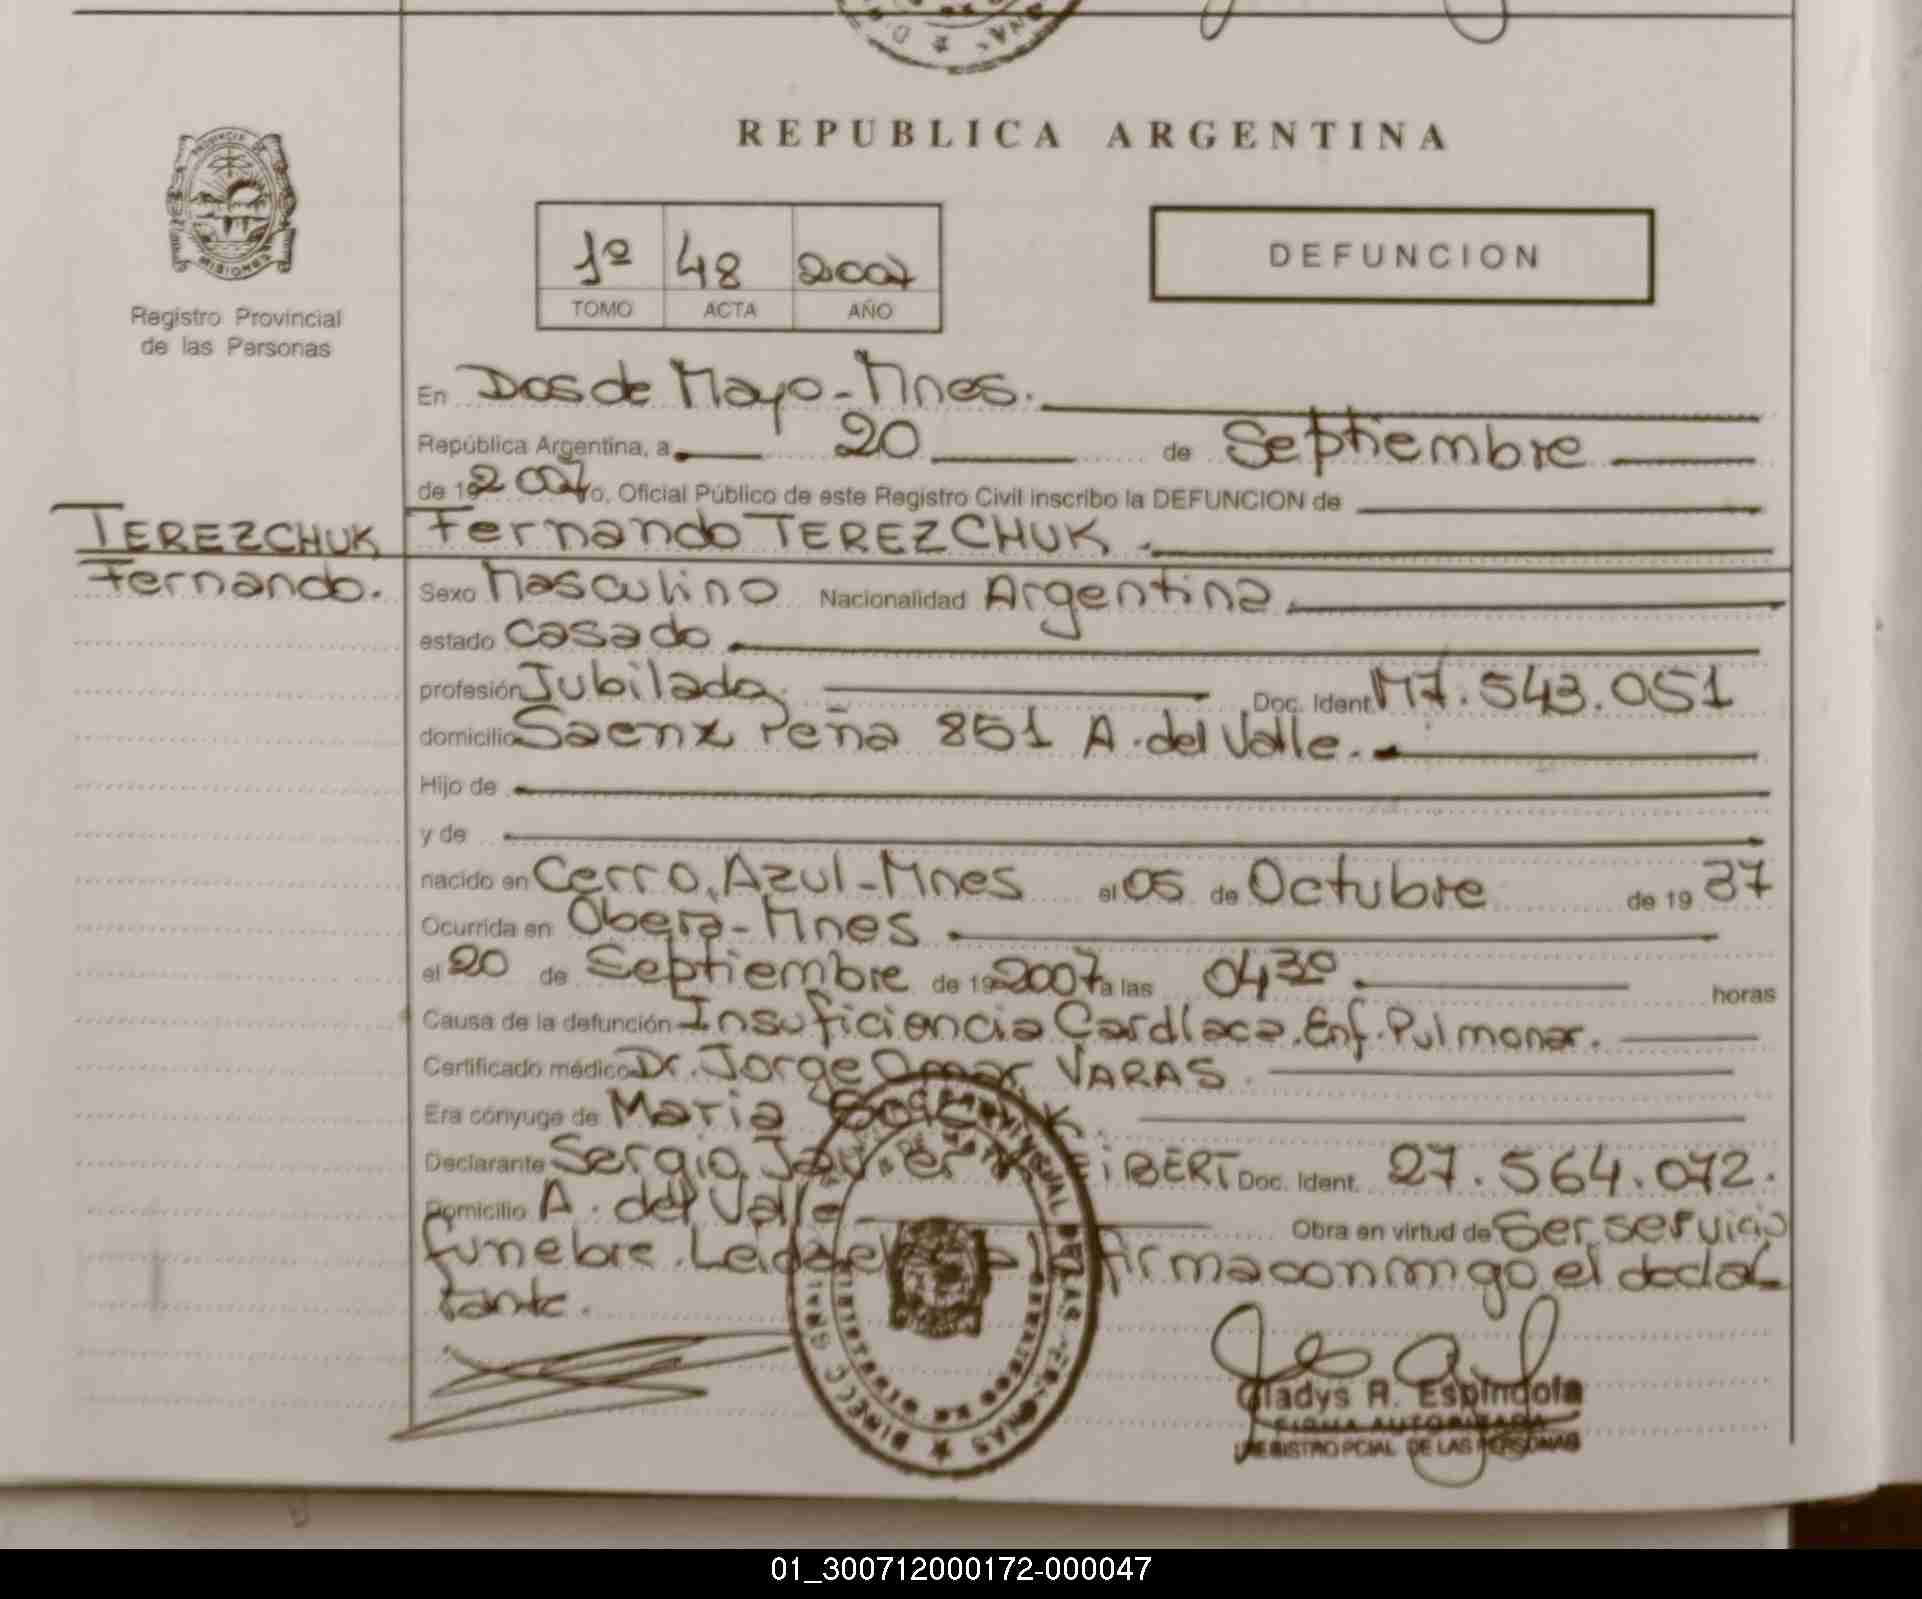 REPUBLICA ARGENTINA
1º 48 2007
TOMO ACTA AÑO
DEFUNCION
Registro Provincial
de las Personas
En Dos de Mayo - Mnes.
República Argentina, a 20 de Septiembre
de 19 2007 yo, Oficial Público de este Registro Civil inscribo la DEFUNCION de
TEREZCHUK
Fernando.
Fernando TEREZCHUK.
Sexo Masculino Nacionalidad Argentina
estado casado
profesión Jubilado. Doc. Ident. M7.543.051
domicilio Saenz Peña 851 A. del Valle.
Hijo de
y de
nacido en Cerro Azul - Mnes el 05 de Octubre de 19 37
Ocurrida en Oberá - Mnes
el 20 de Septiembre de 19 2007 a las 04 30 horas
Causa de la defunción Insuficiencia Cardiaca. Enf. Pulmonar.
Certificado médico Dr. Jorge Omar VARAS.
Era cónyuge de Maria
Declarante Sergio Javier Doc. Ident. 27.564.072.
Domicilio A. del Valle Obra en virtud de Ser servicio
funebre. Leida el firma conmigo el declar
tante.
Gladys R. Espindola
FIRMA AUTORIZADA
REGISTRO PCIAL DE LAS PERSONAS
01_300712000172-000047